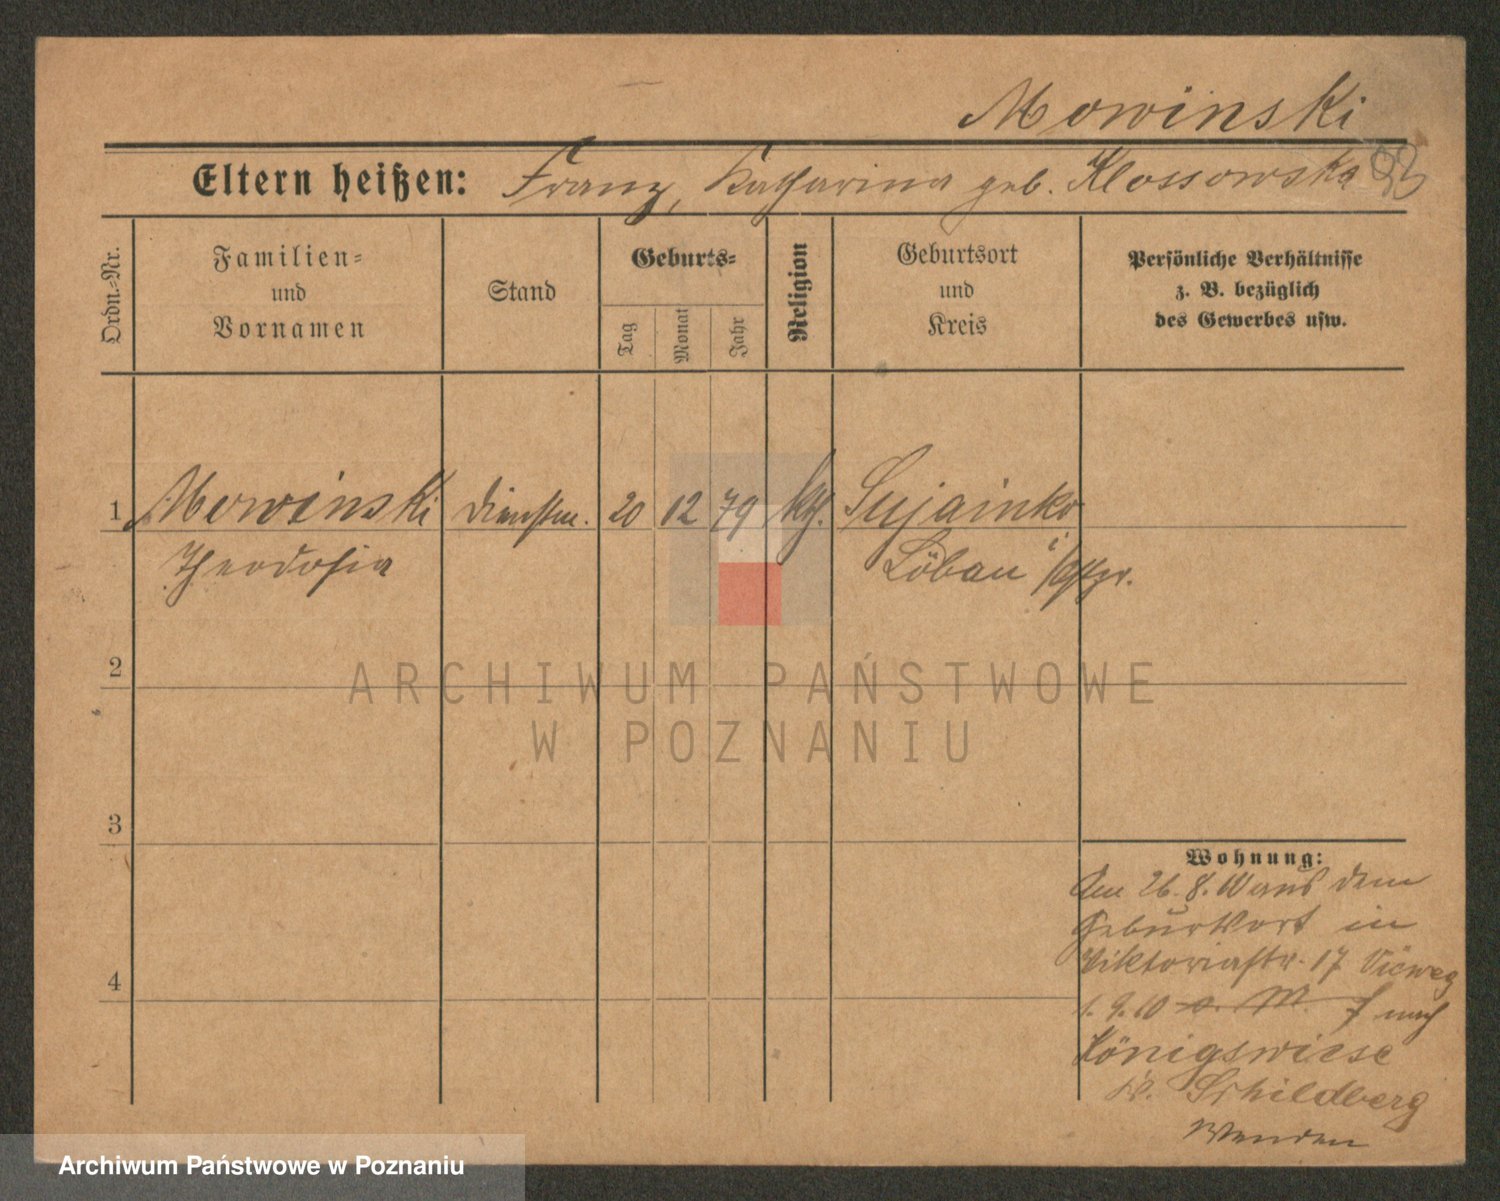 Mowinski
Eltern heißen: Franz, Katharina geb. Klossowska
Ordn.-Nr.
Familien-
und
Vornamen
Stand
Geburts-
Tag
Monat
Jahr
Religion
Geburtsort
und
Kreis
Persönliche Verhältnisse
z. B. bezüglich
des Gewerbes usw.
1 Mowinski Dienstm. 20 12 79 kth. Sujainko
Theodosia Löbau i/Wstpr.
2
ARCHIWUM PAŃSTWOWE
W POZNANIU
3
Wohnung:
Am 26. 8. aus dem
Geburtsort in
Viktoriastr. 17
1. 9. 10 nach
Königswiese
Kr. Schildberg
Wenden
4
Archiwum Państwowe w Poznaniu